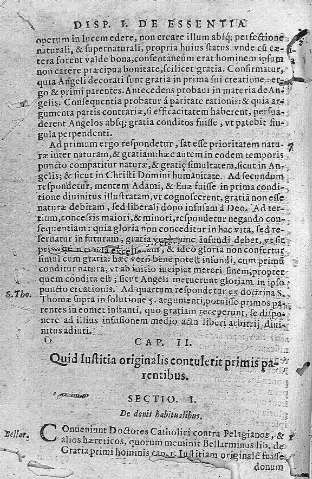 DISP. I. DE ESSENTIA
operum in lucem edere, non creare illum absq; perfectione
naturali, & supernaturali, propria huius status vnde cũ cæ-
tera forent valde bona, conſentaneũ erat hominem ipſum
non carere præcipua bonitate, ſcilicet gratia. Confirmatur,
quia Angeli decorati ſunt gratia in prima ſui creatione, er-
go & primi parentes. Antecedens probaui in materia de An-
gelis. Conſequentia probatur à paritate rationis: & quia ar-
gumenta partis contrariæ, ſi efficacitatem haberent, perſua-
derent Angelos abſq; gratia conditos fuiſſe, vt patebit ſin-
gula perpendenti.
Ad primum ergo reſpondetur, ſat eſſe prioritatem natu-
ræ inter naturam, & gratiam: hæc autem in eodem temporis
puncto compatitur naturæ, & gratiæ ſimultatem, ſicut in An-
gelis; & ſicut in Chriſti Domini humanitate. Ad ſecundum
reſpondetur, mentem Adami, & Euæ fuiſſe in prima condi-
tione diuinitus illuſtratam, vt cognoſceret, gratiã non eſſe
naturæ debitam, ſed
Deo. Ad ter-
tium, conceſsis maiori, & minori, reſpondetur negando con-
ſequentiam: quia gloria non conceditur in hac vita, ſed re-
ſeruatur in futuram, gratia
nunc infundi debet, vt ſit
& ideo gloria non confertur
ſimul cum gratia: hæc verò bene poteſt infundi, cum primũ
conditur natura, vt ab initio incipiat mereri finem, propter
quem condita eſt; ſicut Angeli meruerunt gloriam in ipſo
puncto creationis. Ad quartum reſpondetur ex doctrina S.
S. Tho.
Thomæ ſupra in ſolutione 5. argumenti, potuiſſe primos pa-
rentes in eodem inſtanti, quo gratiam receperunt, ſe diſpo-
nere ad illius infuſionem medio actu liberi arbitrij, diui-
nitus adiuti.
CAP. II.
Quid Iuſtitia originalis contulerit primis pa-
rentibus.
SECTIO I.
De donis habitualibus.
Bellar.
COnueniunt Doctores Catholici contra Pelagianos, &
alios hæreticos, quorum meminit Bellarminus lib. de
Gratia primi hominis cap. 1. Iuſtitiam originalẽ fuiſſe
donum